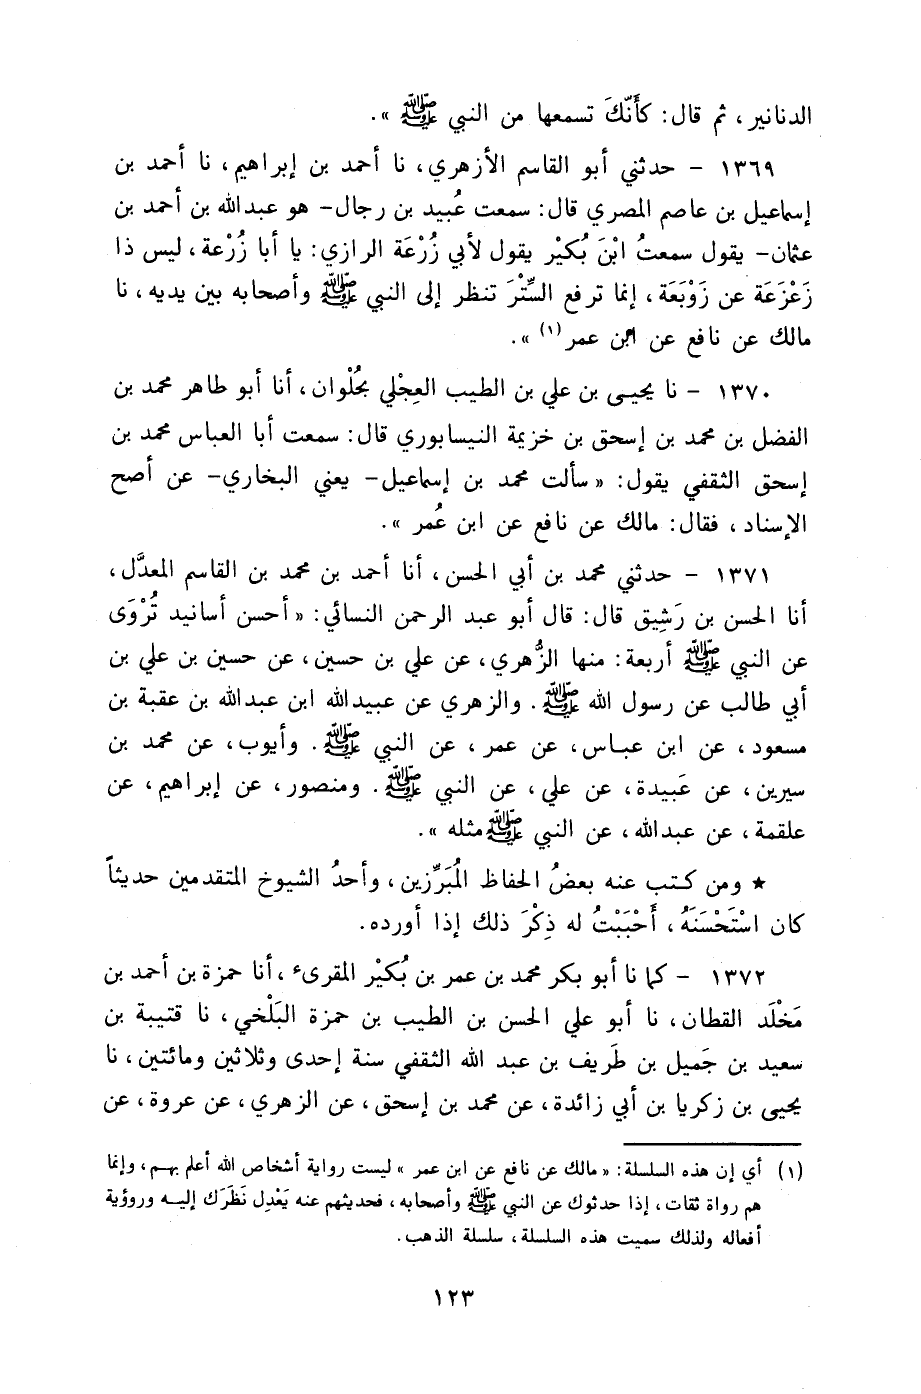 الدنانير، ثم قال: كأَنَّكَ تسمعها من النبي ﷺ ».
١٣٦٩ - حدثني أبو القاسم الأزهري، نا أحمد بن إبراهيم، نا أحمد بن
إسماعيل بن عاصم المصري قال: سمعت عُبيد بن رجال- هو عبدالله بن أحمد بن
عثمان- يقول سمعتُ ابْنَ بُكيْر يقول لأبي زُرْعَة الرازي: يا أبا زُرْعة، ليس ذا
زَعْزَعَة عن زَوْبَعَة، إنما ترفع السِّتْرَ تنظر إلى النبي ﷺ وأصحابه بين يديه، نا
مالك عن نافع عن ابن عمر(١) ».
١٣٧٠ - نا يحيـى بن علي بن الطيب العِجْلي بحُلْوان، أنا أبو طاهر محمد بن
الفضل بن محمد بن إسحق بن خزيمة النيسابوري قال: سمعت أبا العباس محمد بن
إسحق الثقفي يقول: « سألت محمد بن إسماعيل- يعني البخاري- عن أصح
الإسناد، فقال: مالك عن نافع عن ابن عُمر ».
١٣٧١ - حدثني محمد بن أبي الحسن، أنا أحمد بن محمد بن القاسم المعدَّل،
أنا الحسن بن رَشِيق قال: قال أبو عبد الرحمن النسائي: « أحسن أسانيد تُرْوَى
عن النبي ﷺ أربعة: منها الزُّهري، عن علي بن حسين، عن حسين بن علي بن
أبي طالب عن رسول الله ﷺ. والزهري عن عبيدالله ابن عبدالله بن عقبة بن
مسعود، عن ابن عباس، عن عمر، عن النبي ﷺ. وأيوب، عن محمد بن
سيرين، عن عَبيدة، عن علي، عن النبي ﷺ. ومنصور، عن إبراهيم، عن
علقمة، عن عبدالله، عن النبي ﷺ مثله ».
★ ومن كتب عنه بعضُ الحفاظ المُبَرِّزين، وأحدُ الشيوخ المتقدمين حديثاً
كان اسْتَحْسَنَهُ، أَحْبَبْتُ له ذِكْرَ ذلك إذا أورده.
١٣٧٢ - كما نا أبو بكر محمد بن عمر بن بُكيْر المقرىء، أنا حمزة بن أحمد بن
مَخْلَد القطان، نا أبو علي الحسن بن الطيب بن حمزة البَلْخي، نا قتيبة بن
سعيد بن جَميل بن طَريف بن عبد الله الثقفي سنة إحدى وثلاثين ومائتين، نا
يحيى بن زكريا بن أبي زائدة، عن محمد بن إسحق، عن الزهري، عن عروة، عن
(١) أي إن هذه السلسلة: « مالك عن نافع عن ابن عمر » ليست رواية أشخاص الله أعلم بهـم، وإنما
هم رواة ثقات، إذا حدثوك عن النبي ﷺ وأصحابه، فحديثهم عنه يَعْدِل نَظَرَك إليـه ورؤية
أفعاله ولذلك سميت هذه السلسلة، سلسلة الذهب.
١٢٣